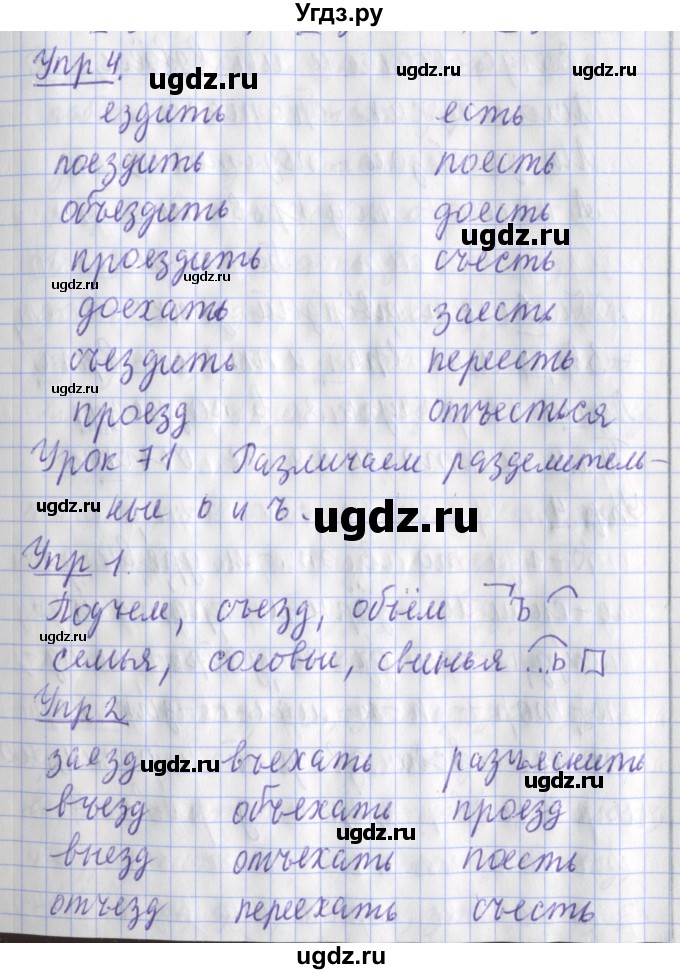 Угдз.ру
Упр 4.
ugdz.ru ugdz.ru
ездить есть
поездить поесть
объездить доесть
ugdz.ru
проездить съесть
ugdz.ru ugdz.ru
доехать заесть
съездить переесть
ugdz.ru
проезд отъесться
Урок 71 Различаем разделитель-
ные ь и ъ.
ugdz.ru ugdz.ru
Упр 1.
Подъем, съезд, объём ъ
ugdz.ru
семья, соловьи, свинья ..ь
Упр 2
заезд въехать разъяснить
ugdz.ru ugdz.ru
въезд объехать проезд
ugdz.ru
выезд отъехать поесть
отъезд переехать съесть
ugdz.ru